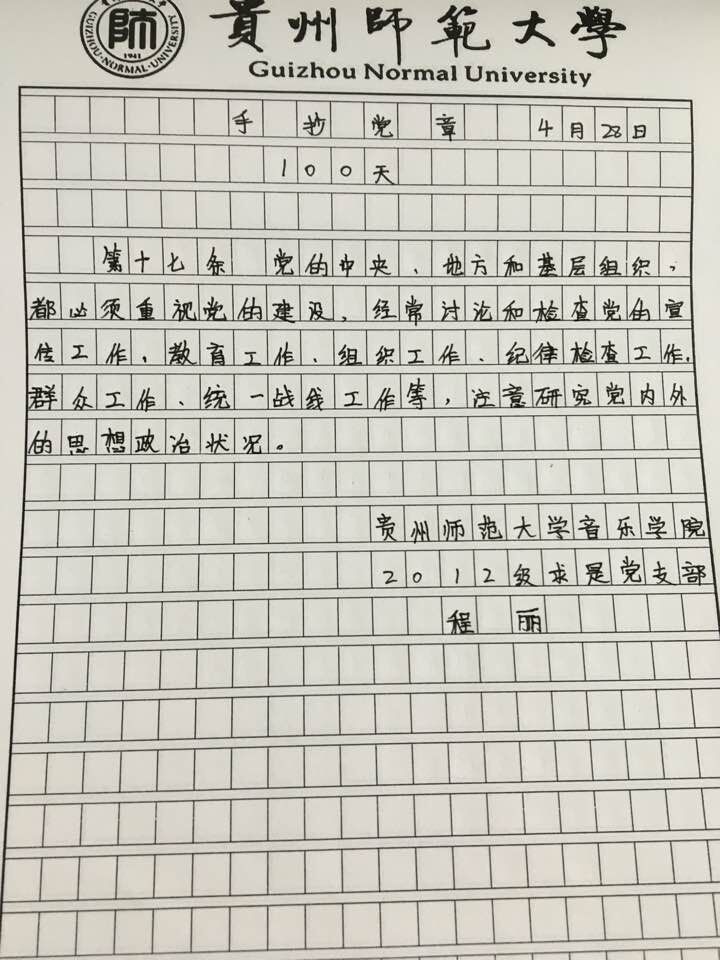 貴州師範大學
GUIZHOU·NORMAL·UNIVERSITY
師
1941
Guizhou Normal University
手抄党章 4月28日
100天
第十七条 党的中央、地方和基层组织,
都必须重视党的建设,经常讨论和检查党的宣
传工作、教育工作、组织工作、纪律检查工作、
群众工作、统一战线工作等,注意研究党内外
的思想政治状况。
贵州师范大学音乐学院
2012级求是党支部
程丽